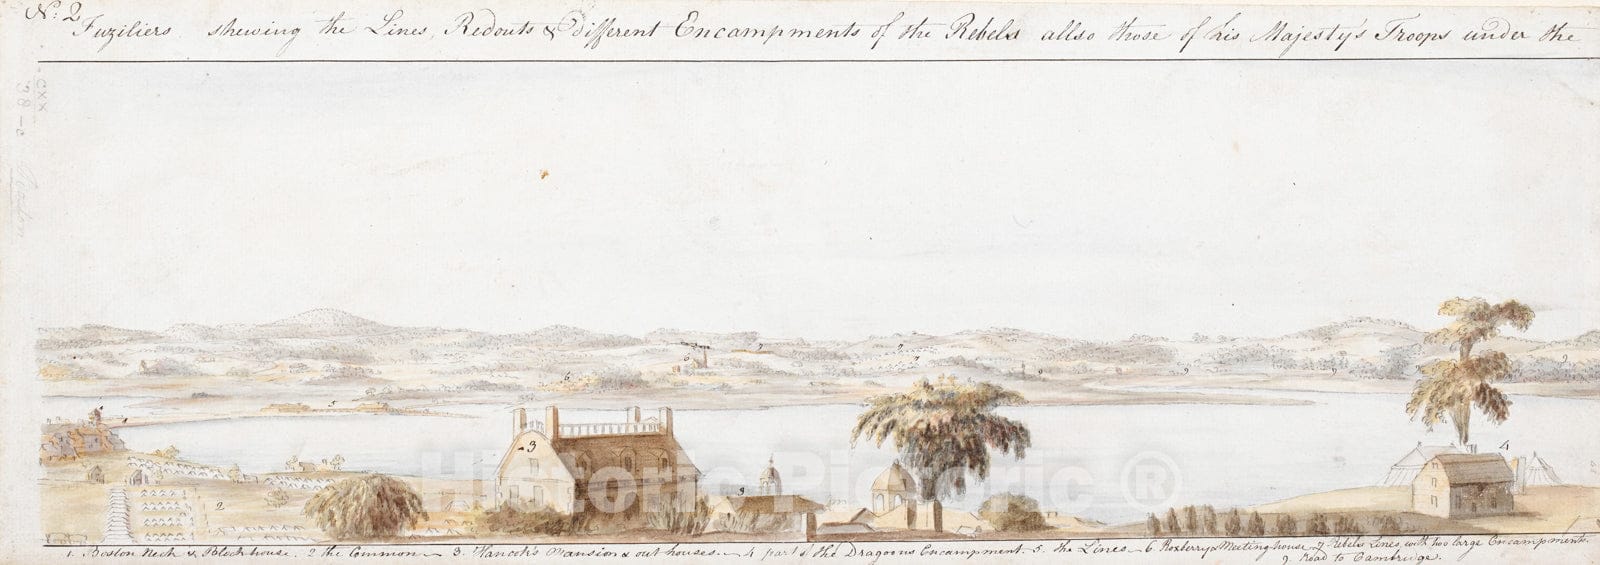 No: 2
Fuziliers shewing the Lines, Redouts & different Encampments of the Rebels allso those of his Majesty's Troops under the
CXX
38-c
Boston
6 7 7 7
6 9 9 9 9
1 5
3 4
2 3
Historic Pictoric ®
1. Boston Neck & Blockhouse. 2 the Common 3. Hancok's Mansion & out houses. 4 part of the Dragoons Encampment. 5. the Lines 6 Roxberry & Meeting house 7 Rebels Lines, with two large Encampments.
9. Road to Cambridge.